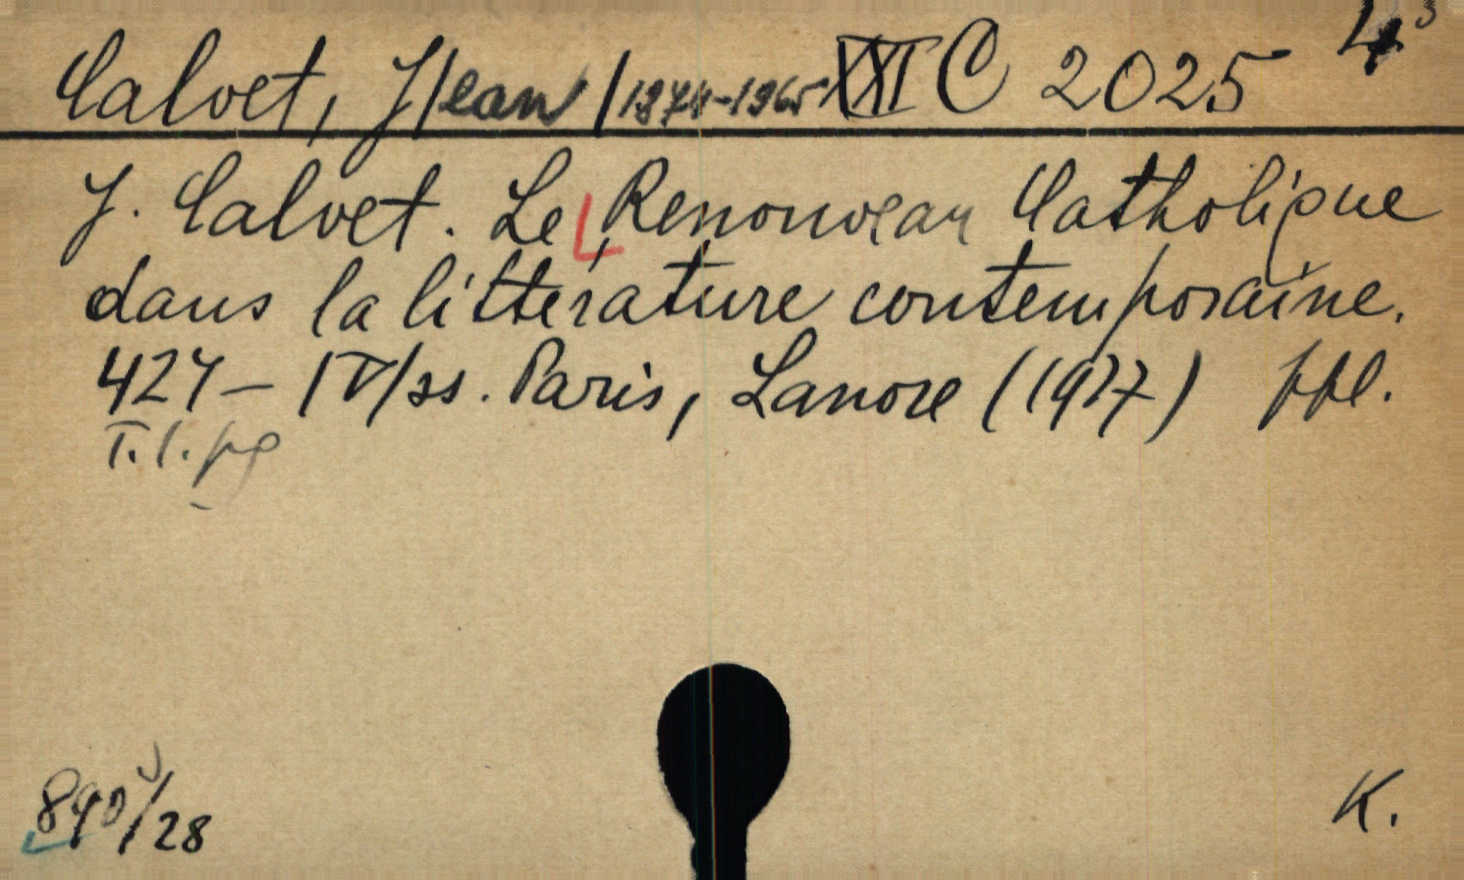 Calvet, J/ean/1874-1965 XXI C 2025 4°
J. Calvet. Le Renouveau Catholique
dans la littérature contemporaine.
427 - IV/ss. Paris, Lanore (1927) ppl.
T. l. pg
890/28
K.